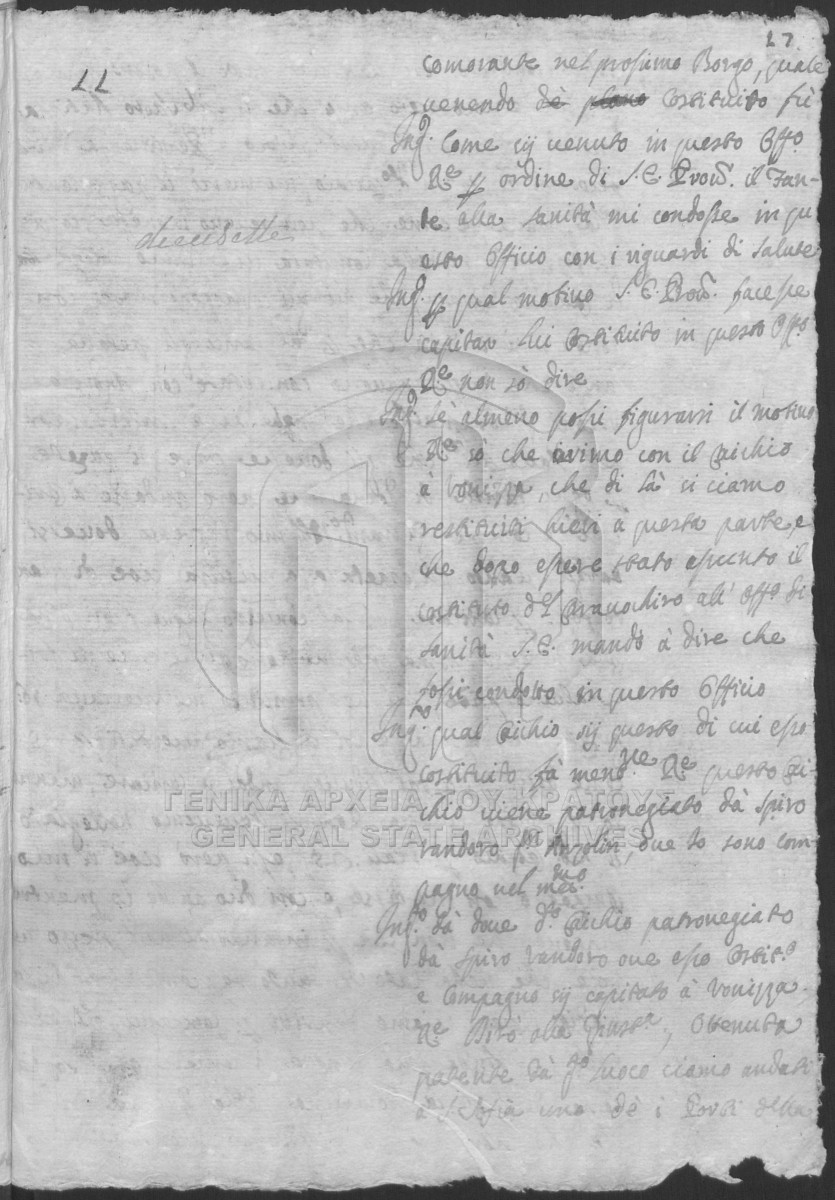 17
11
diecisette
comorante nel prossimo Borgo, quale
uenendo dè plano Costituito fù
Ing.º Come sij uenuto in questo Off.º
R.e p ordine di S. E. Prov.r il Fan-
te alla sanità mi condosse in qu
esto Officio con i riguardi di salute
Ing.º p qual motiuo S. E. Prov.r facesse
capitar lui Costituito in questo Off.º
R.e non sò dire
Ing.º sè almeno possi figurarsi il motiuo
R.e sò che erimo con il Caichio
à Vonizza, che di là si ciamo
restituiti hieri a questa parte, e
che dopo essere stato assunto il
costituto del Carauochiro all' Off.º di
sanità S. E. mandò à dire che
fossi condotto in questo Officio
Ing.º qual Caichio sij questo di cui esso
Costituito fà menz.ne R.e questo Cai-
chio uiene patronegiato dà Spiro
Vandoro di Anzolin, due Io sono com-
pagno nel med.mo
Ing.º dà doue d.º Caichio patronegiato
dà Spiro Vandoro oue esso Costit.º
e Compagno sij capitato à Vonizza
R.e Dirò alla Giust.a, Ottenuta
patente dà q.º luoco ciamo andati
a S. Sofia uno dè i Porti della
ΓΕΝΙΚΑ ΑΡΧΕΙΑ ΤΟΥ ΚΡΑΤΟΥΣ
GENERAL STATE ARCHIVES